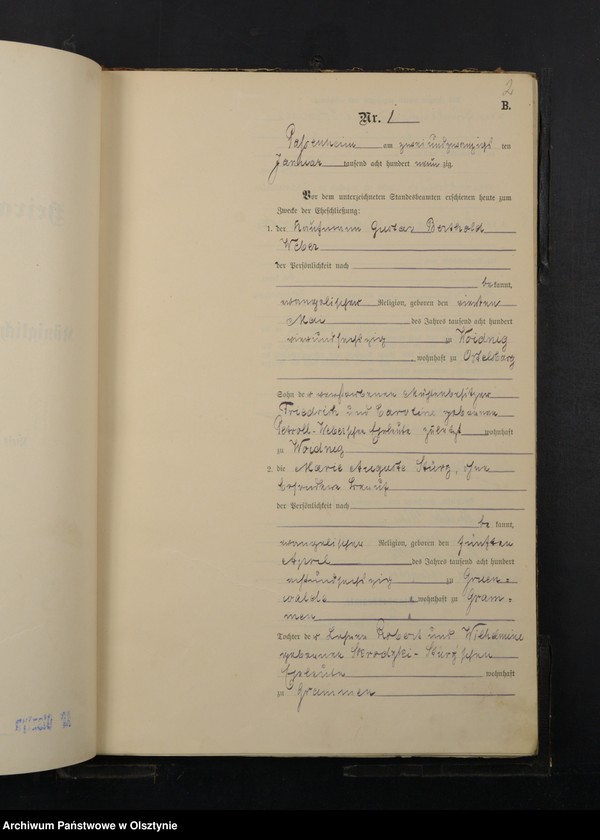 2
B.
Nr. 1
Passenheim am zwei und zwanzigsten
Januar tausend acht hundert neun zig.
Vor dem unterzeichneten Standesbeamten erschienen heute zum
Zwecke der Eheschließung:
1. der Kaufmann Gustav Berthold
Weber
der Persönlichkeit nach
bekannt,
evangelischer Religion, geboren den vierten
Mai des Jahres tausend acht hundert
vierundsechszig zu
, wohnhaft zu Ortelsburg
Sohn des verstorbenen
Friedrich und Caroline geborenen
Petroll-Weberschen Eheleute zuletzt wohnhaft
zu
2. die Marie Auguste Sturz, ohne
besonderen Beruf
der Persönlichkeit nach
be kannt,
evangelischer Religion, geboren den fünften
April des Jahres tausend acht hundert
achtundsechszig zu Gruen=
walde , wohnhaft zu Gram=
men
Tochter der Lehrer Robert und Wilhelmine
geborenen Skrodzki-Sturzschen
Eheleute wohnhaft
zu Grammen
Archiwum Państwowe w Olsztynie